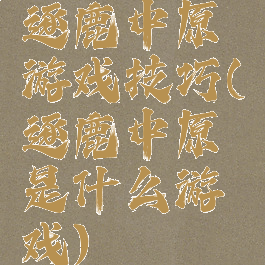 逐鹿中原
游戏技巧(
逐鹿中原
是什么游
戏)